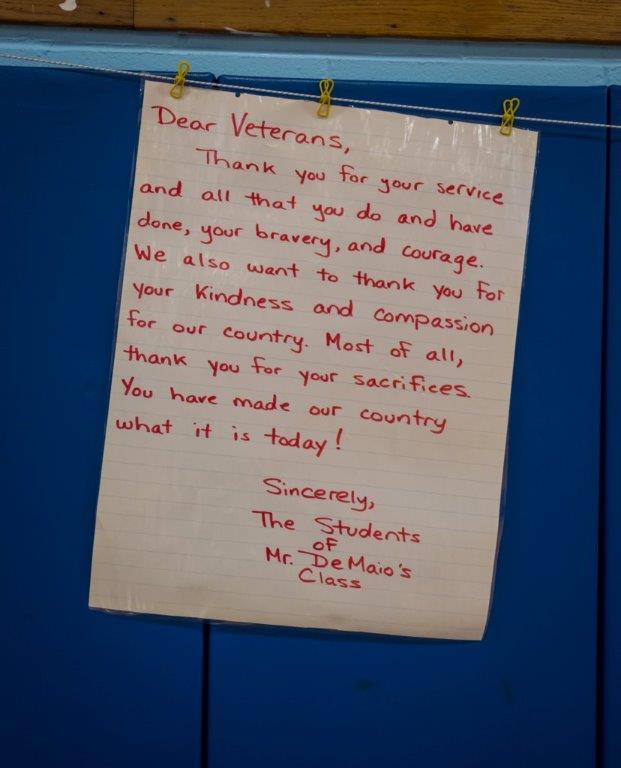 Dear Veterans,
Thank you for your service
and all that you do and have
done, your bravery, and courage.
We also want to thank you for
your kindness and compassion
for our country. Most of all,
thank you for your sacrifices.
You have made our country
what it is today!
Sincerely,
The Students
of
Mr. DeMaio's
Class